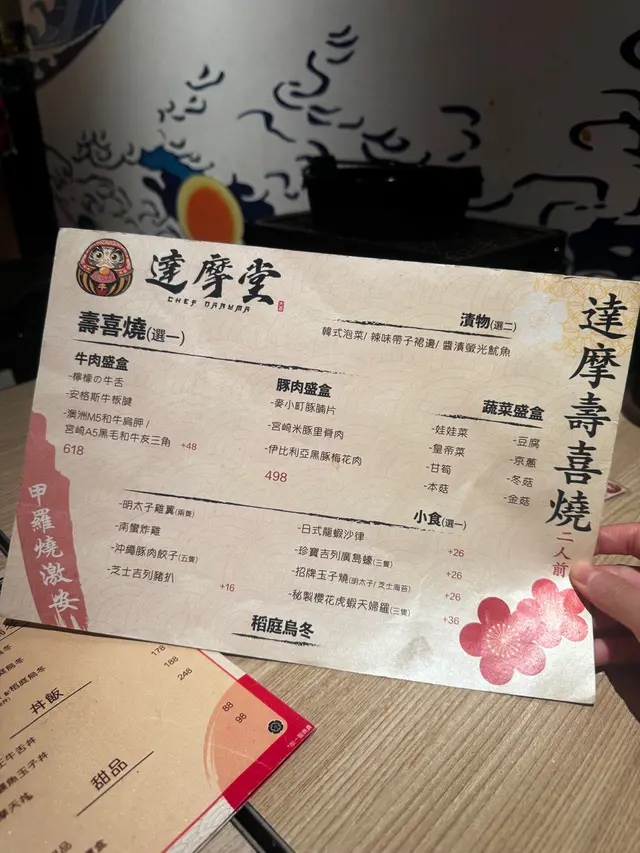 達摩堂
CHEF DARUMA
壽喜燒(選一)
牛肉盛盒
-檸檬の牛舌
-安格斯牛板腱
-澳洲M5和牛肩胛 /
宮崎A5黑毛和牛友三角 +48
618
豚肉盛盒
-麥小町豚腩片
-宮崎米豚里脊肉
-伊比利亞黑豚梅花肉
498
漬物(選二)
韓式泡菜/ 辣味帶子裙邊/ 醬漬螢光魷魚
蔬菜盛盒
-娃娃菜
-皇帝菜
-甘筍
-本菇
-豆腐
-京蔥
-冬菇
-金菇
小食(選一)
-明太子雞翼(兩隻)
-南蠻炸雞
-沖繩豚肉餃子(五隻)
-芝士吉列豬扒 +16
-日式龍蝦沙律 +26
-珍寶吉列廣島蠔(三隻) +26
-招牌玉子燒(明太子/ 芝士海苔) +26
-秘製櫻花虎蝦天婦羅(三隻) +36
稻庭烏冬
達摩壽喜燒
二人前
甲羅燒激安
稻庭烏冬
178
188
248
丼飯
牛舌丼
魚玉子丼
88
98
甜品